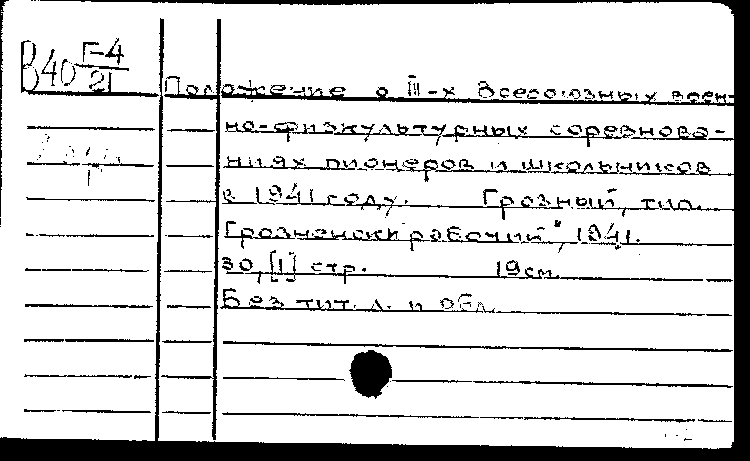 В40 Г-4/21
Положение о III-х Всесоюзных воен-
но-физкультурных соревнова-
ниях пионеров и школьников
в 1941 году. Грозный, тип.
"Грозненский рабочий", 1941.
30, [1] стр. 19 см.
Без тит. л. и обл.